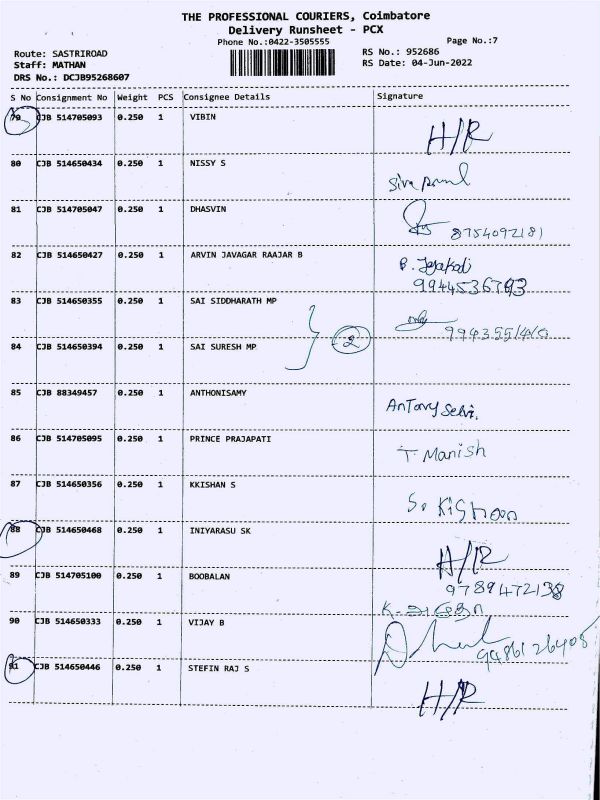 THE PROFESSIONAL COURIERS, Coimbatore
Delivery Runsheet - PCX
Phone No.:0422-3505555
Page No.:7
Route: SASTRIROAD
RS No.: 952686
Staff: MATHAN
RS Date: 04-Jun-2022
DRS No.: DCJB95268607
S No Consignment No Weight PCS Consignee Details Signature
79 CJB 514705093 0.250 1 VIBIN H/R
80 CJB 514650434 0.250 1 NISSY S
81 CJB 514705047 0.250 1 DHASVIN 8754092181
82 CJB 514650427 0.250 1 ARVIN JAVAGAR RAAJAR B
83 CJB 514650355 0.250 1 SAI SIDDHARATH MP
2
84 CJB 514650394 0.250 1 SAI SURESH MP
85 CJB 88349457 0.250 1 ANTHONISAMY Antony Selvi.
86 CJB 514705095 0.250 1 PRINCE PRAJAPATI T. Manish
87 CJB 514650356 0.250 1 KKISHAN S
88 CJB 514650468 0.250 1 INIYARASU SK H/R
89 CJB 514705100 0.250 1 BOOBALAN 9789472138
90 CJB 514650333 0.250 1 VIJAY B 9486126405
91 CJB 514650446 0.250 1 STEFIN RAJ S H/R